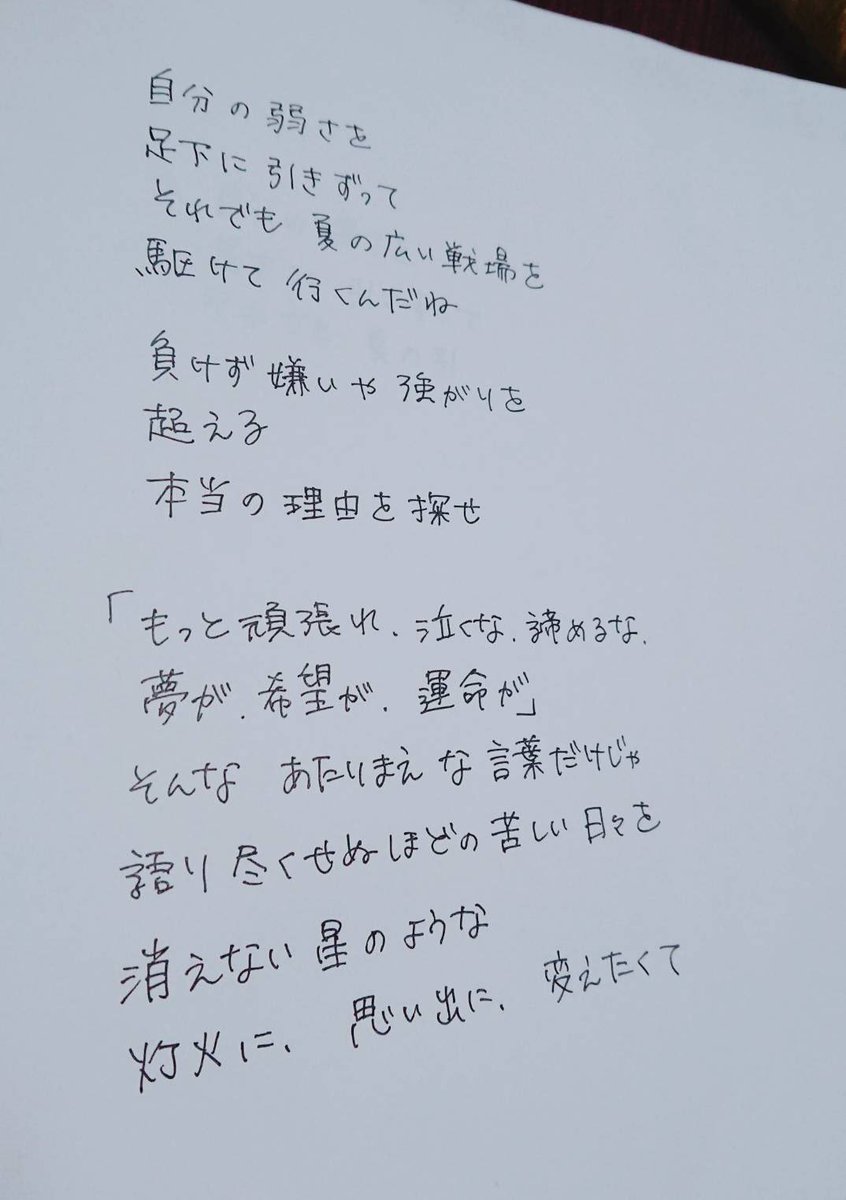 自分の弱さを
足下に引きずって
それでも 夏の広い戦場を
駆けて行くんだね
負けず嫌いや強がりを
超える
本当の理由を探せ
「もっと頑張れ、泣くな、諦めるな、
夢が、希望が、運命が」
そんな あたりまえな言葉だけじゃ
語り尽くせぬほどの苦しい日々を
消えない星のような
灯火に、思い出に、変えたくて